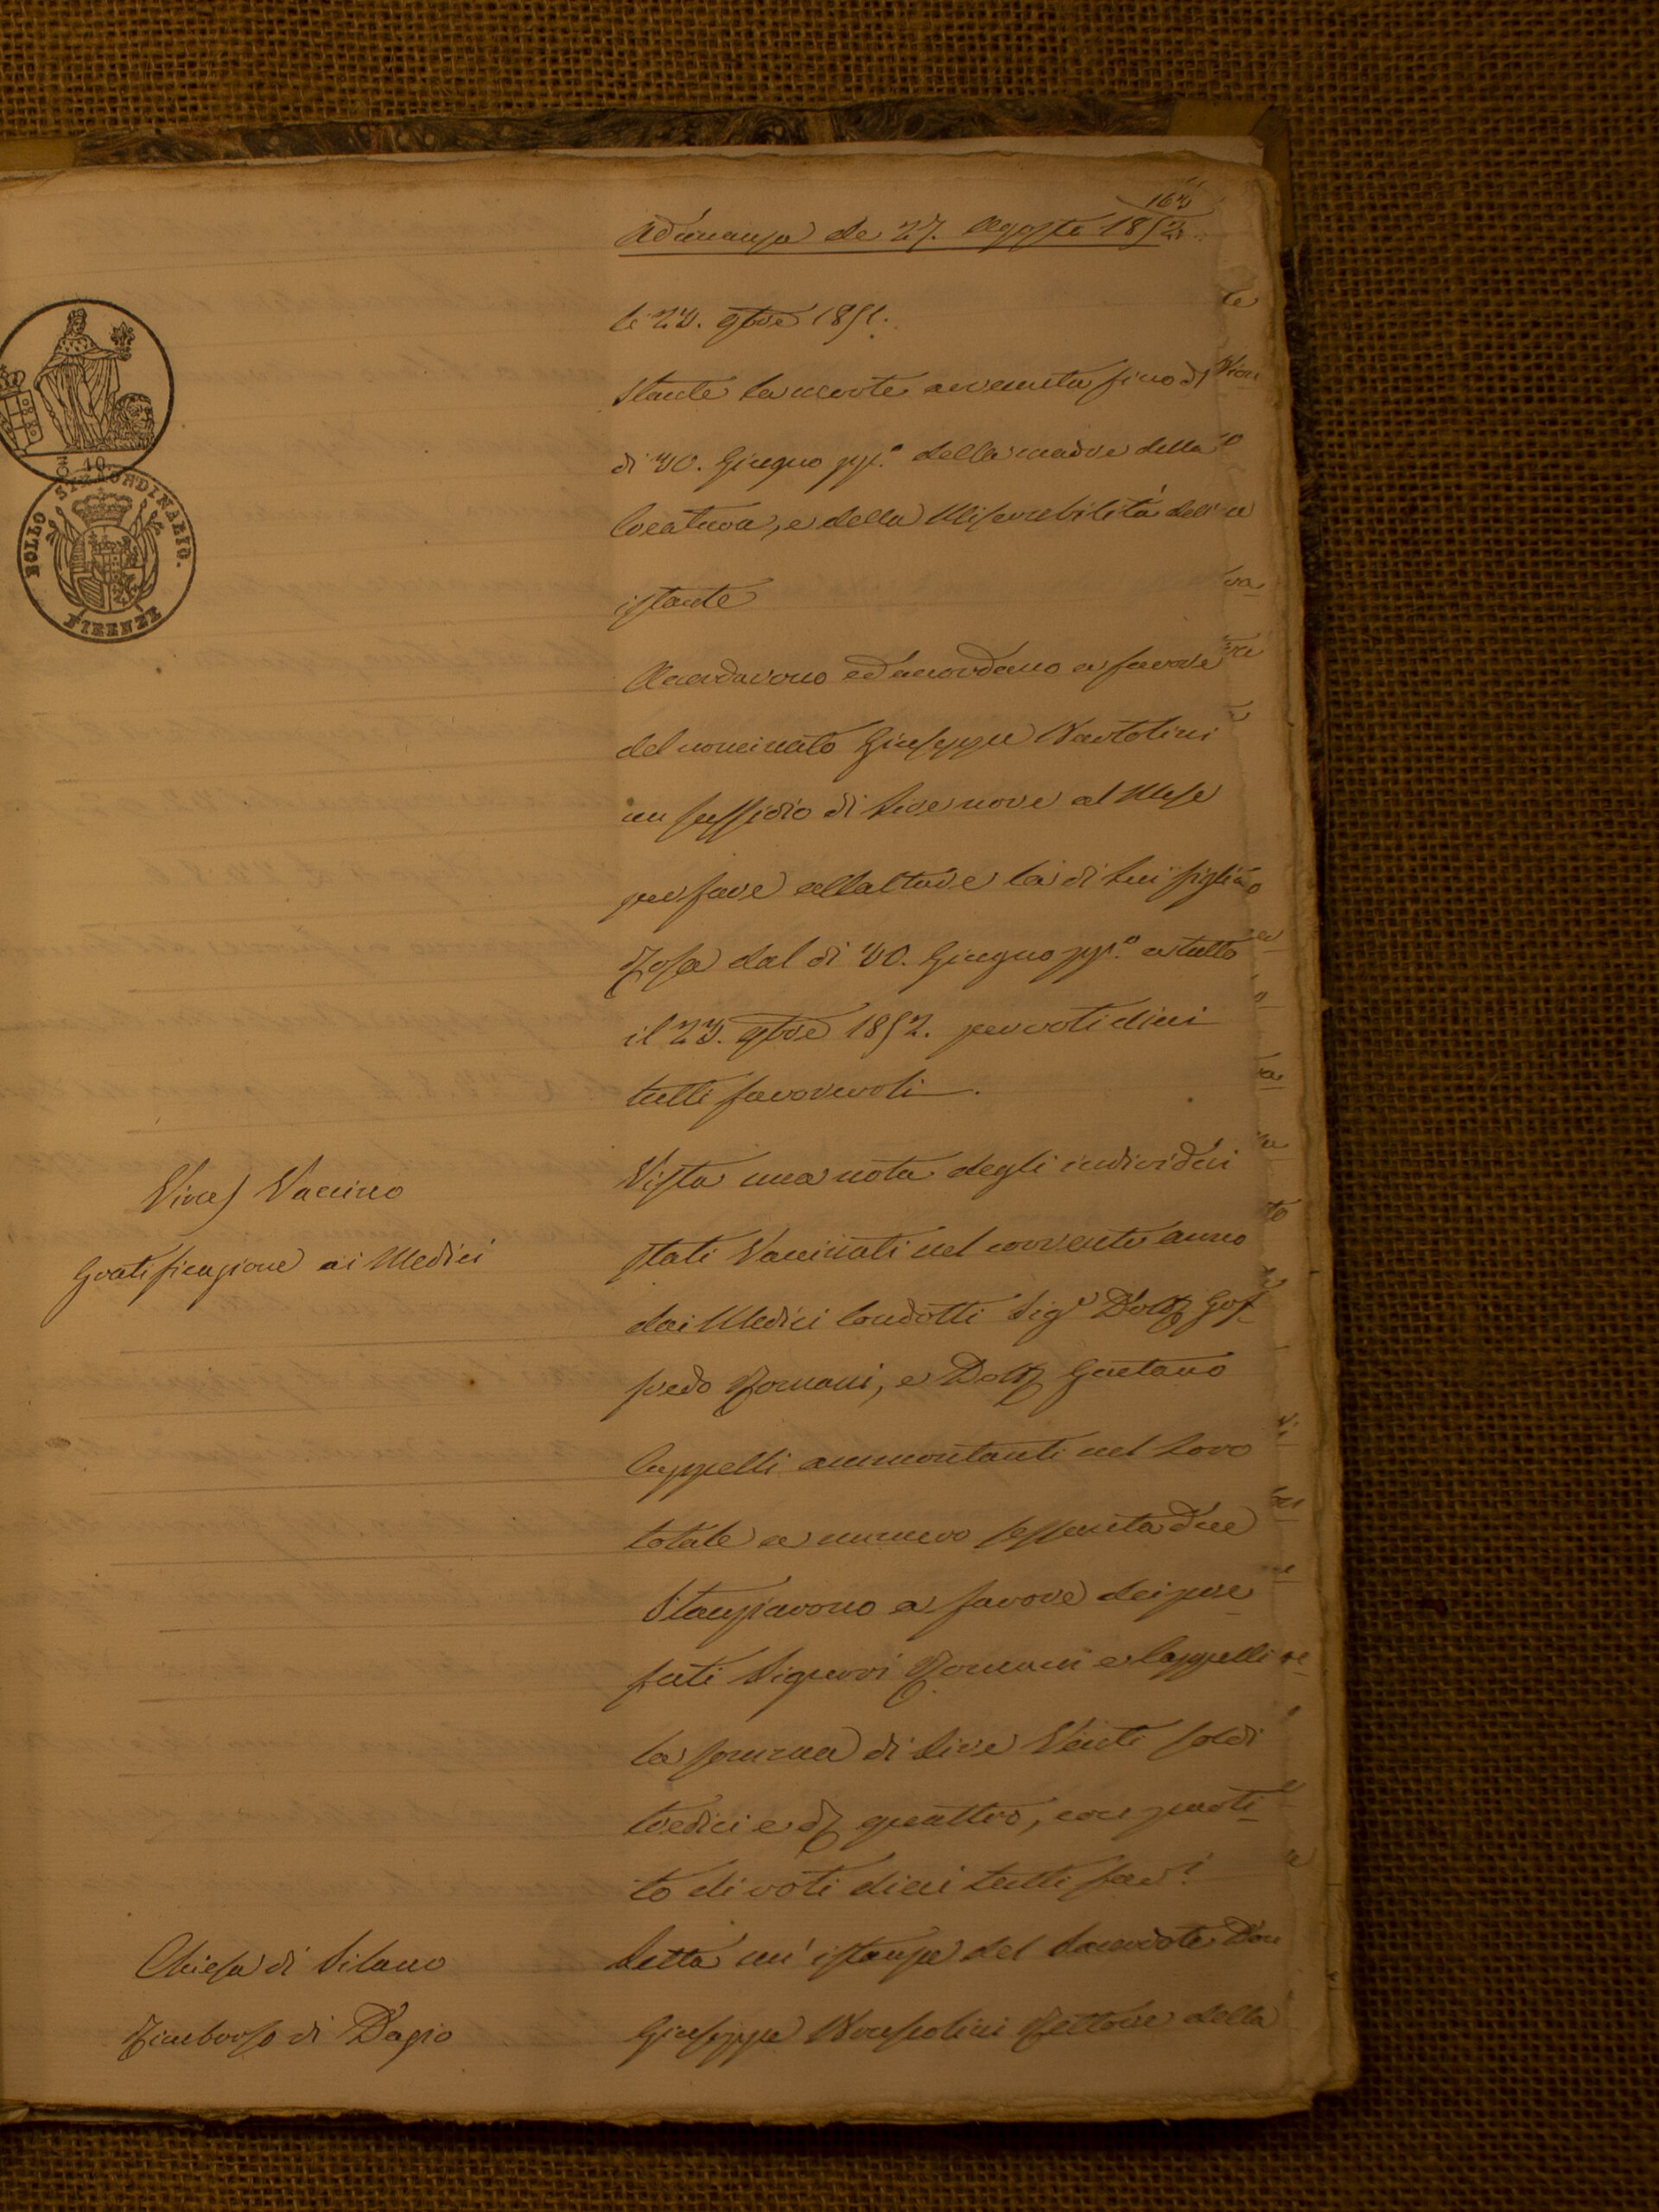 163
Adunanza de 27. Agosto 1852.
li 23. 9bre 1851.
Stante la morte avvenuta fino di
di 30. Giugno pp.º della madre della
Creatura, e della Miserabilità dell'
istante
Accordarono ed accordano a favore
del nominato Giuseppe Bartolini
un sussidio di Lire nove al Mese
per fare allattare la di lui figlia
Rosa dal dì 30. Giugno pp.º a tutto
il 23. 9bre 1852. per voti dieci
tutti favorevoli.
Virus Vaccino
Gratificazione ai Medici
Vista una nota degli individui
stati Vaccinati nel corrente anno
dai Medici Condotti Sig.i Dott. Gof-
fredo Romani, e Dott. Gaetano
Cappelli ammontanti nel Loro
totale a numero sessanta due
Stanziarono a favore dei pre
fati Signori Romani e Cappelli
la somma di Lire Venti soldi
tredici e d. quattro, con parti-
to di voti dieci tutti fav.i
Chiesa di Silano
Rimborso di Dazio
Letta un'istanza del Sacerdote Don
Giuseppe Rettore della
BOLLO STRAORDINARIO.
FIRENZE